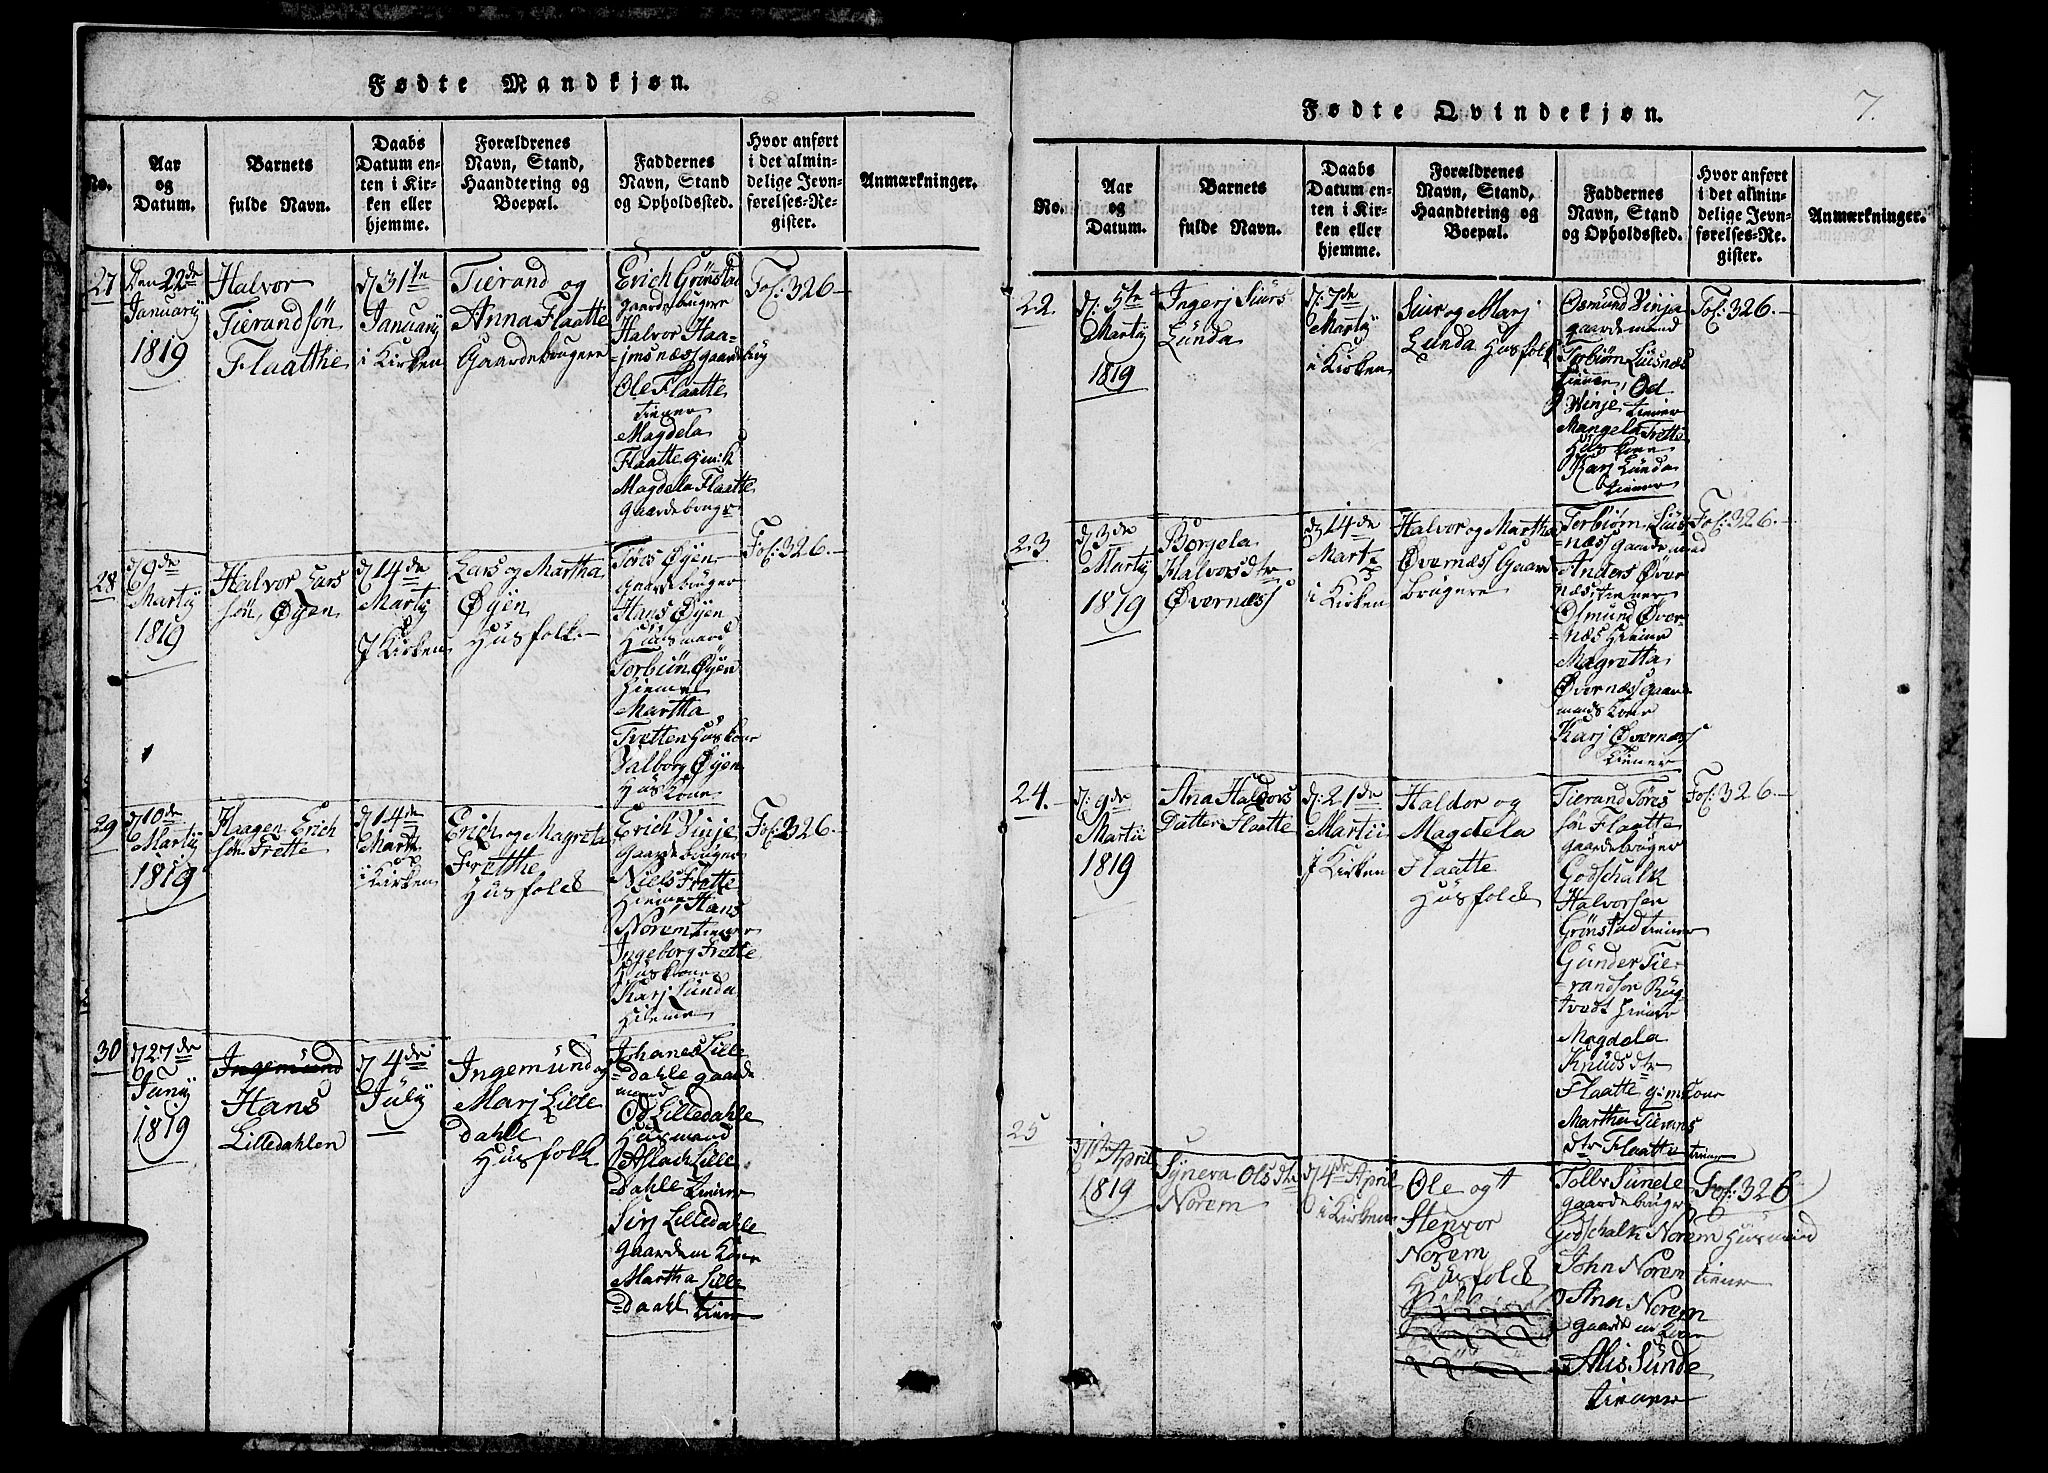 Fødte Mandkjøn.
No.
Aar
og
Datum.
Barnets
fulde Navn.
Daabs
Datum en-
ten i Kir-
ken eller
hjemme.
Forældrenes
Navn, Stand,
Haandtering og
Boepæl.
Faddernes
Navn, Stand
og Opholdssted.
Hvor anført
i det almin-
delige Jevn-
førelses-Re-
gister.
Anmærkninger.
27
Den 22de
January
1819
Halvor
Tierandsøn
Flaathe
d 31te
January
i Kirken
Tierand og
Anna Flaatte
Gaardebrugere
Erich Grönstad
gaardebrugere
Halvor Haa-
=jmsnæs gaardebrug
Ole Flaatte
tiener
Magdela
Flaatte gm: k
Magdela Flaatte
gaardebrugr
Fol: 326 –
28
d 9de
Martij
1819
Halvor Lars
søn, Øyen
d 14de
Martij
J Kirken
Lars og Martha
Øyen
Husfolk –
Tøres Øyen
gaardebruger
Hans Øyen
Huusmand
Torbiün Øyen
tiener
Martha
Tvetten Huskone
Valborg Øyen
Huskone
Fol: 326 –
29
d 10de
Martij
1819
Haagen Erich
søn Frette
d 14de
Marti
i Kirken
Erich og Magreta
Frethe
Husfolk
Erich Vinje
gaardebruger
Niels Frette
tiener, Hans
Norem tiener
Ingeborg Frette
Huskone
Karj Lunda
tiener
Fol: 326 –
30
d 27de
Juny
1819
Ingemund
Hans
Lilledahlen
d 4de
July
Ingemund og
Marj Lille
Dahle
Husfolk
Johanes Lille
=dahle gaarde
mand
Od Lilledahle
Husmand
Aslach Lille
Dahle tiener
Sirj Lilledahle
gaardem Kone
Martha Lille
=daahl tiener
7.
Fødte Qvindekjøn.
No.
Aar
og
Datum.
Barnets
fulde Navn.
Daabs
Datum en-
ten i Kir-
ken eller
hjemme.
Forældrenes
Navn, Stand,
Haandtering og
Boepæl.
Faddernes
Navn, Stand
og Opholdssted.
Hvor anført
i det almin-
delige Jevn-
førelses-Re-
gister.
Anmærkninger.
22.
d: 5te
Martij
1819
Ingerj Siurs
Lunda
d: 7de
Martij
i Kirken
Siur og Marj
Lunda Husfolk
Osmund Vinja
gaardemand
Torbiørn Luisnæs
tiener, Od
Winje tiener
Mangela Frette
Huskone
Karj Lunda
tiener
Fol: 326. –
23
d 3de
Martij
1819
Borgela
Halvorsdtr
Øvernæss
d 14de
Marti
i Kirken
Halvor og Martha
Øvernæss Gaard
brugere
Torbiørn Luis
=næss gaardemand
Anders Øver
næs tiener
Osmund Øver-
=næs tiener
Magretta
Øvernæss gaard
mands kone
Karj Øvernæss
tiener
Fol: 326. –
24. –
d: 9de
Martii
1819
Ana Haldors
Datter Flaatte
d: 21de
Martii
J Kirken
Haldor og
Magdela
Flaatte
Husfolk
Tierand Tøres
søn Flaatte
gaardebruger
Godschalk
Halvorsen
Grönstad tiener
Gunder Tie-
randsen Rug
tvedt tiener
Magdela
Knudsdtr
Flaatte g:m kone
Martha Tierans
dtr Flaatte tiener
Fol: 326 –
25
d 1te April
1819
Syneva Olsdtr
Norem
d 4de April
i Kirken
Ole og
Stenvor
Norem
Husfolk
Tollv Sunde
gaardebrugr
Godschalk Norem Husmand
John Norem tiener
Ana Norem
gaardem kone
Alis Sunde
tiener
Fol: 326